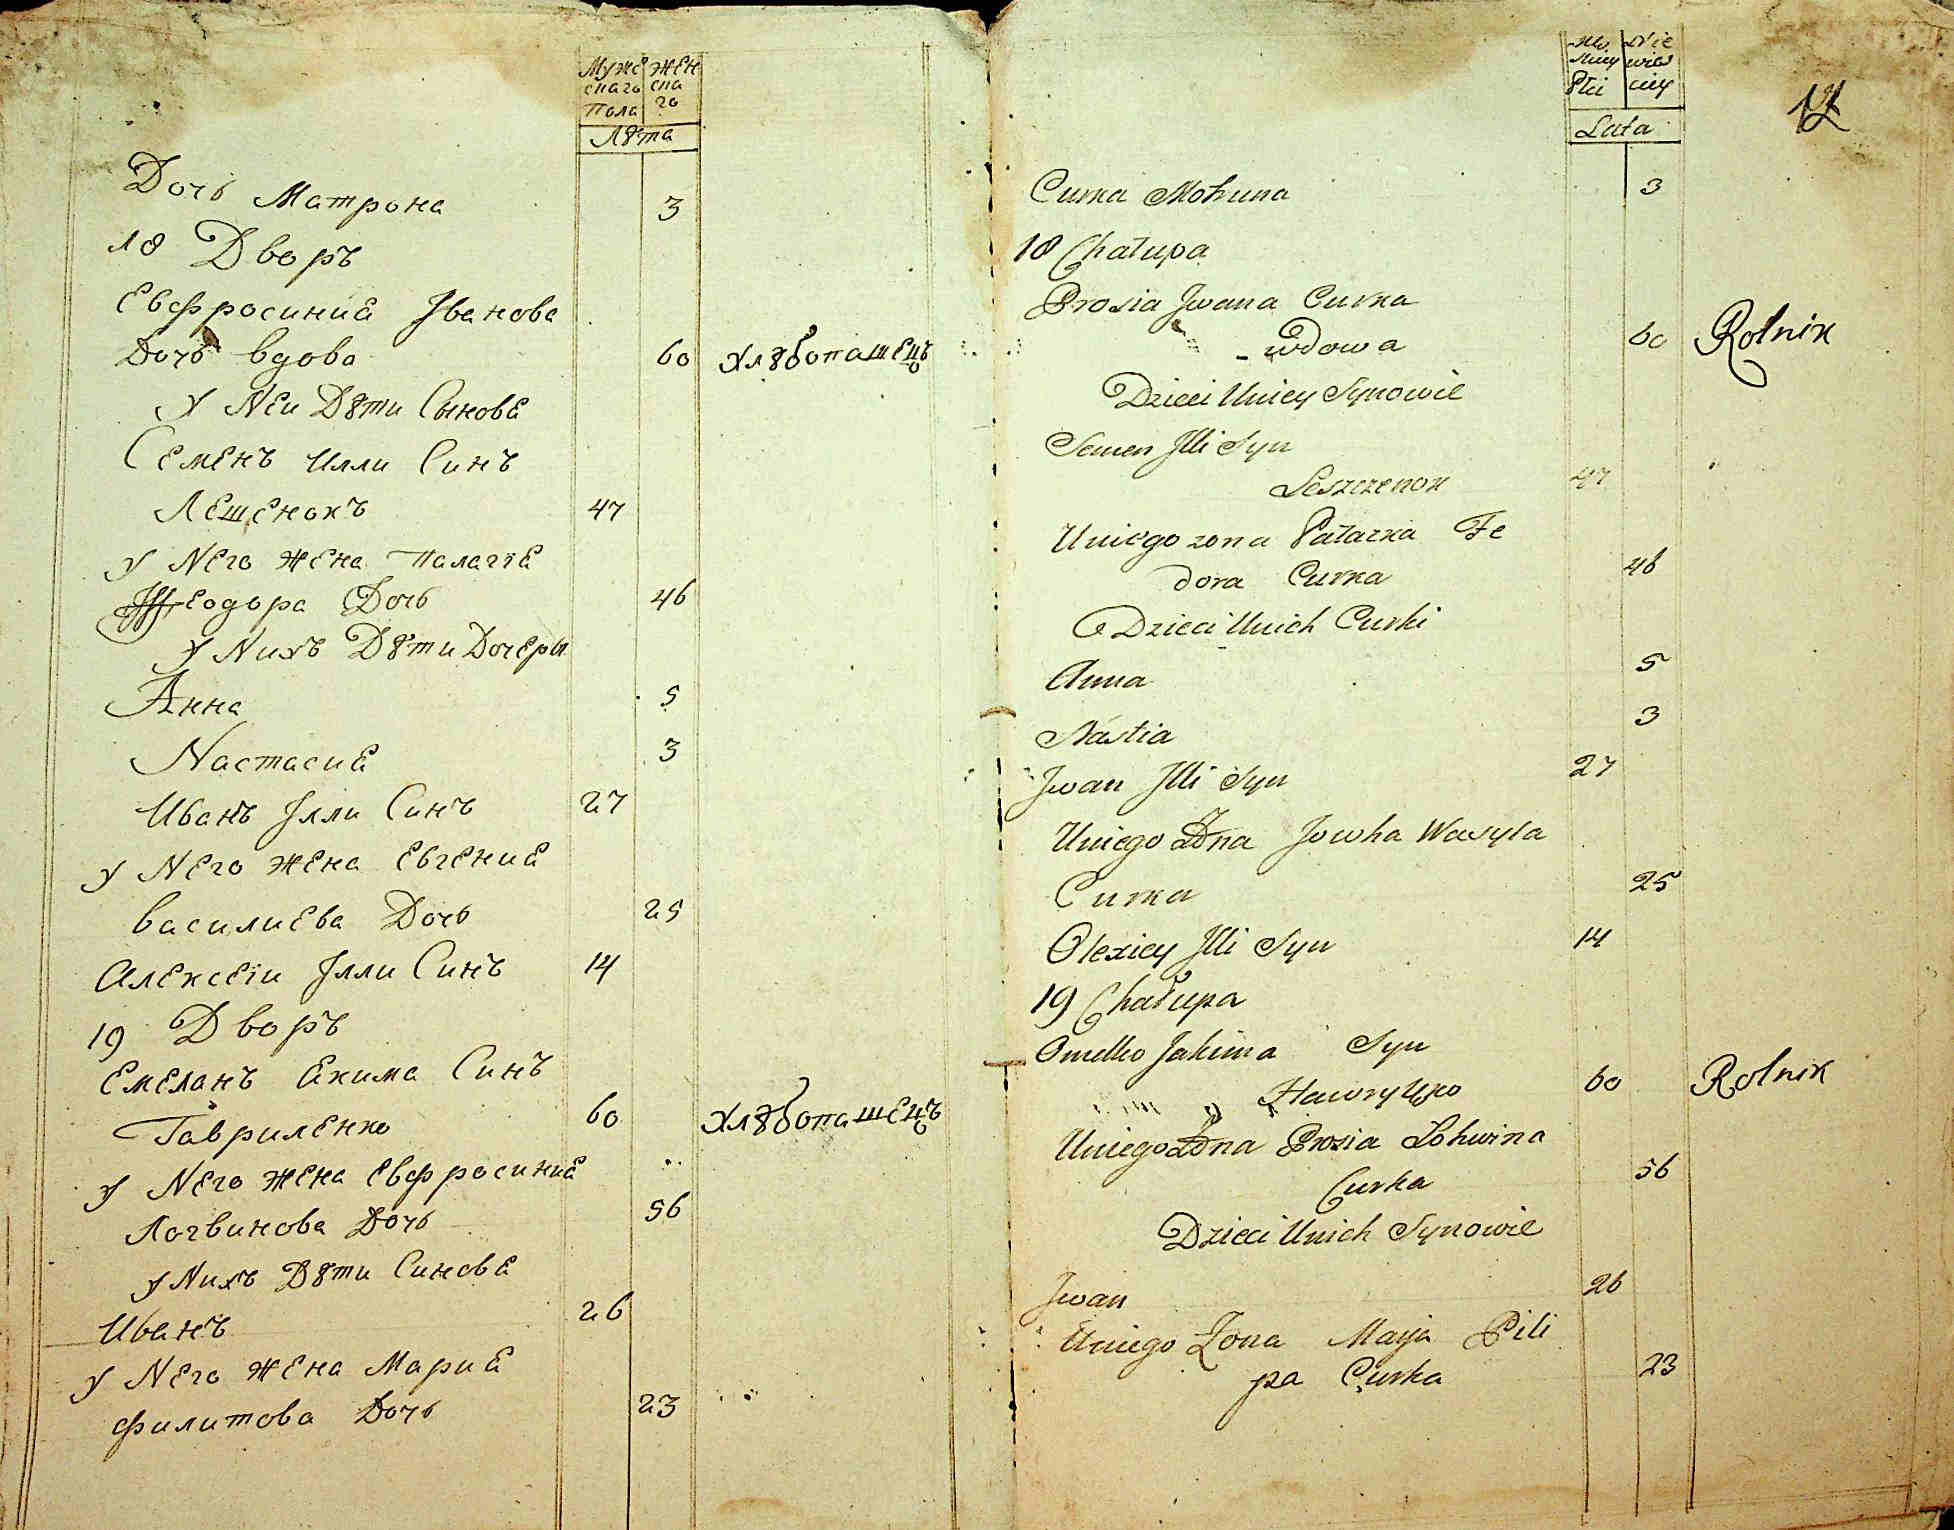 Муже Жен
скаго ска
Пола го
Лѣта
Дочь Матрона 3
18 Дворъ
Евфросиниа Іванова
Дочь вдова 60 Хлѣбопашецъ
у Неи Дѣти Сынове
Семенъ Илли Синъ
Лешенокъ 47
у Него Жена Палагіа
Феодора Дочь 46
у Нихъ Дѣти Дочери
Анна 5
Настасиа 3
Иванъ Iлли Синъ 27
у Него Жена Евгениа
Василиева Дочь 25
Алексеіи Iлли Синъ 14
19 Дворъ
Емелянъ Акима Синъ
Гавриленко 60 Хлѣбопашецъ
у Него Жена Евфросиниа
Логвинова Дочь 56
у Нихъ Дѣти Синове
Иванъ 26
у Него Жена Мариа
Филитова Дочь 23
12
Płci
Lata
Curka Motruna 3
18 Chałupa
Prosia Jwana Curka
wdowa 60 Rolnik
Dzieci Uniey Synowie
Semen Jlli Syn
Leszczenok 47
Uniego zona Pałazka Fe
dora Curka 46
Dzieci Unich Curki
Anna 5
Nastia 3
Jwan Jlli Syn 27
Uniego Żona Jowha Wasyla
Curka 25
Olexiey Jlli Syn 14
19 Chałupa
Omelko Jakima Syn
Hawryłko 60 Rolnik
Uniego Żona Prosia Lohwina
Curka 56
Dzieci Unich Synowie
Jwan 26
Uniego Żona Maryja Pili
pa Curka 23